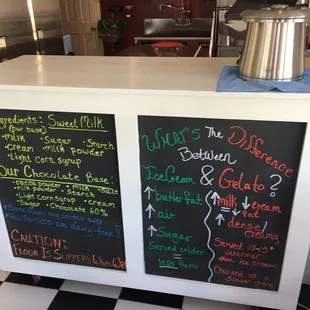 Ingredients: Sweet Milk
(our base)
• Milk • Sugar • Starch
• Cream • milk powder
• Light corn syrup
Our Chocolate Base:
• cocoa powder • milk • Salt
• milk powder • Starch
• Light corn syrup
• Sugar • Chocolate 60%
are dairy-free!
CAUTION:
Floor is Slippery When Wet
WHAT'S the Difference
Between
IceCream & Gelato?
↑ butterfat
↑ air
↑ Sugar
Served colder
less flavor
↑ milk ↓ cream
↓ fat
↑ dense
↓ Sugar
Served 10-15°
warmer
Churned at